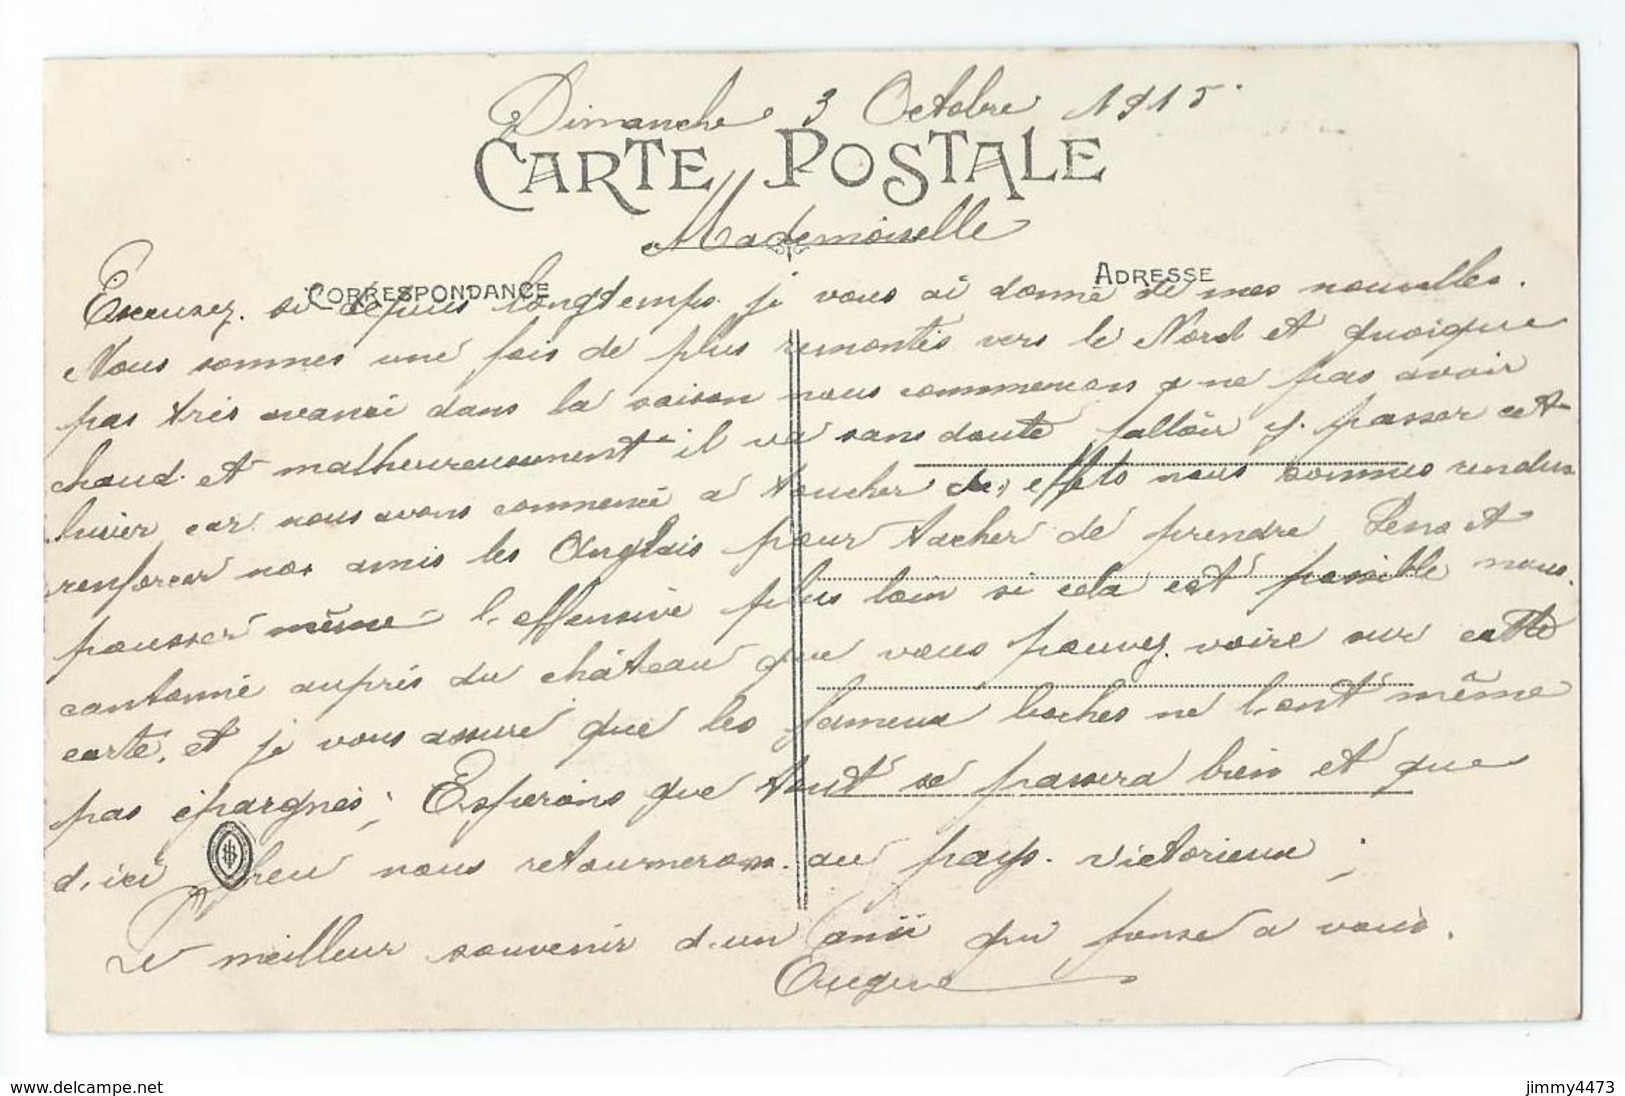 Dimanche 3 Octobre 1915.
CARTE POSTALE
Mademoiselle
CORRESPONDANCE
ADRESSE
Excusez. si depuis longtemps je vous ai donné de mes nouvelles.
Nous sommes une fois de plus remontés vers le Nord et quoique
pas très avancé dans la saison nous commencons a ne pas avoir
chaud. et malheureusement il va sans doute falloir y. passer cet
hiver car nous avons commencé a toucher des effets nous sommes rendus
renforcer nos amis les Anglais pour tacher de prendre Lens et
pousser même l'offensive plus loin si cela est possible nous.
cantonné auprés du château que vous pouvez voire sur cette
carte. et je vous assure que les fameux boches ne l'ont même
pas épargnés; Esperons que tout se passera bien et que
d'ici peu nous retournerons. au pays. victorieux ;
Le meilleur souvenir d'un ami qui pense a vous.
Eugene
www.delcampe.net
jimmy4473